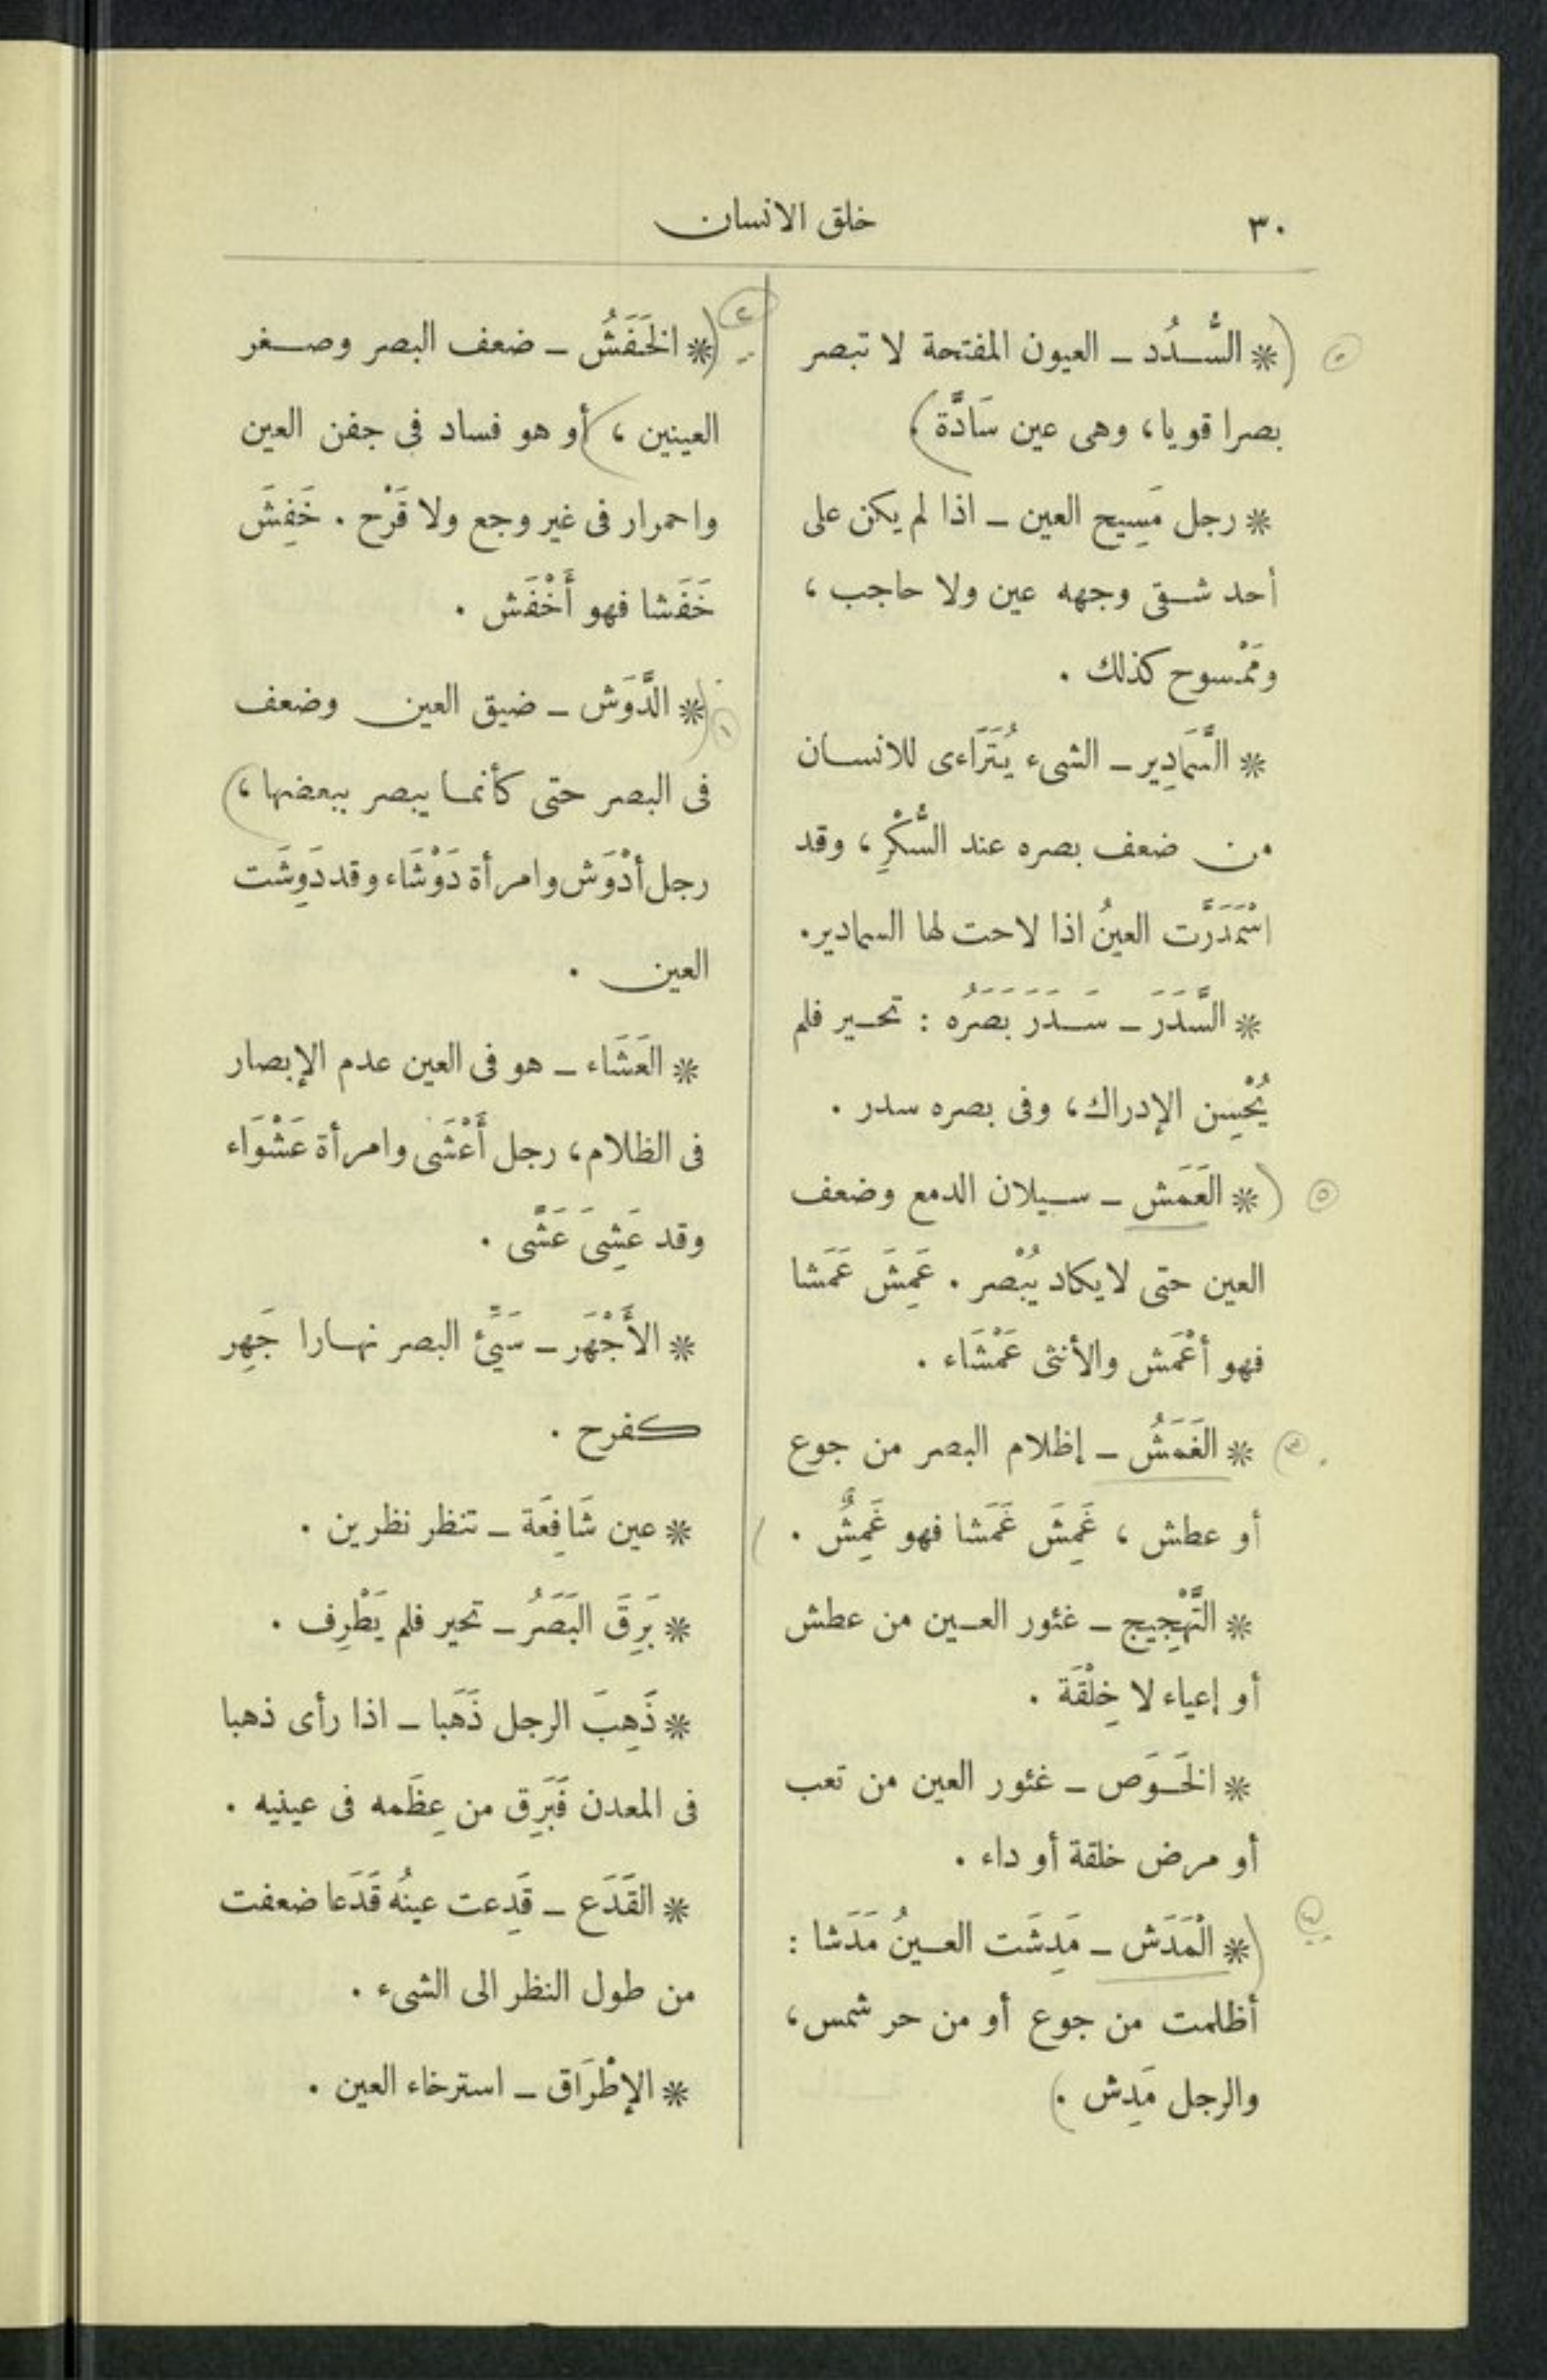 ٣٠
خلق الانسان
* السُّدُد ـ العيون المفتحة لا تبصر
بصرا قويا، وهى عين سَادَّة .
* رجل مَسِيح العين ـ اذا لم يكن على
أحد شقى وجهه عين ولا حاجب ،
ومَمْسوح كذلك .
* السَّمَادِير ـ الشىء يُتَرَاءى للانسان
من ضعف بصره عند السُّكْرِ ، وقد
اسْمَدَرَّت العينُ اذا لاحت لها السمادير.
* السَّدَرَ ـ سَدَرَ بَصَرُه : تحير فلم
يُحْسِن الإدراك ، وفى بصره سدر .
* العَمَش ـ سيلان الدمع وضعف
العين حتى لا يكاد يُبْصر . عَمِشَ عَمَشا
فهو أعْمَش والأنثى عَمْشَاء .
* الغَمَشُ ـ إظلام البصر من جوع
أو عطش ، غَمِشَ غَمَشا فهو غَمِشٌ .
* التَّهْجِيج ـ غئور العين من عطش
أو إعياء لا خِلْقَة .
* الخَوَص ـ غئور العين من تعب
أو مرض خلقة أو داء .
* الْمَدَش ـ مَدِشَت العينُ مَدَشا :
أظلمت من جوع أو من حر شمس ،
والرجل مَدِش .
* الخَفَشُ ـ ضعف البصر وصغر
العينين ، أو هو فساد فى جفن العين
واحمرار فى غير وجع ولا قَرْح . خَفِشَ
خَفَشا فهو أَخْفَش .
* الدَّوَش ـ ضيق العين وضعف
فى البصر حتى كأنما يبصر ببعضها ،
رجل أدْوَش وامرأة دَوْشَاء وقد دَوِشَت
العين .
* العَشَاء ـ هو فى العين عدم الإبصار
فى الظلام ، رجل أَعْشَى وامرأة عَشْوَاء
وقد عَشِىَ عَشًى .
* الأَجْهَر ـ سَيِّئ البصر نهارا جَهِر
كفرح .
* عين شَافِعَة ـ تنظر نظرين .
* بَرِقَ البَصَرُ ـ تحير فلم يَطْرِف .
* ذَهِبَ الرجل ذَهَبا ـ اذا رأى ذهبا
فى المعدن فَبَرِق من عِظَمه فى عينيه .
* القَدَع ـ قَدِعت عينُه قَدَعا ضعفت
من طول النظر الى الشىء .
* الإطْرَاق ـ استرخاء العين .